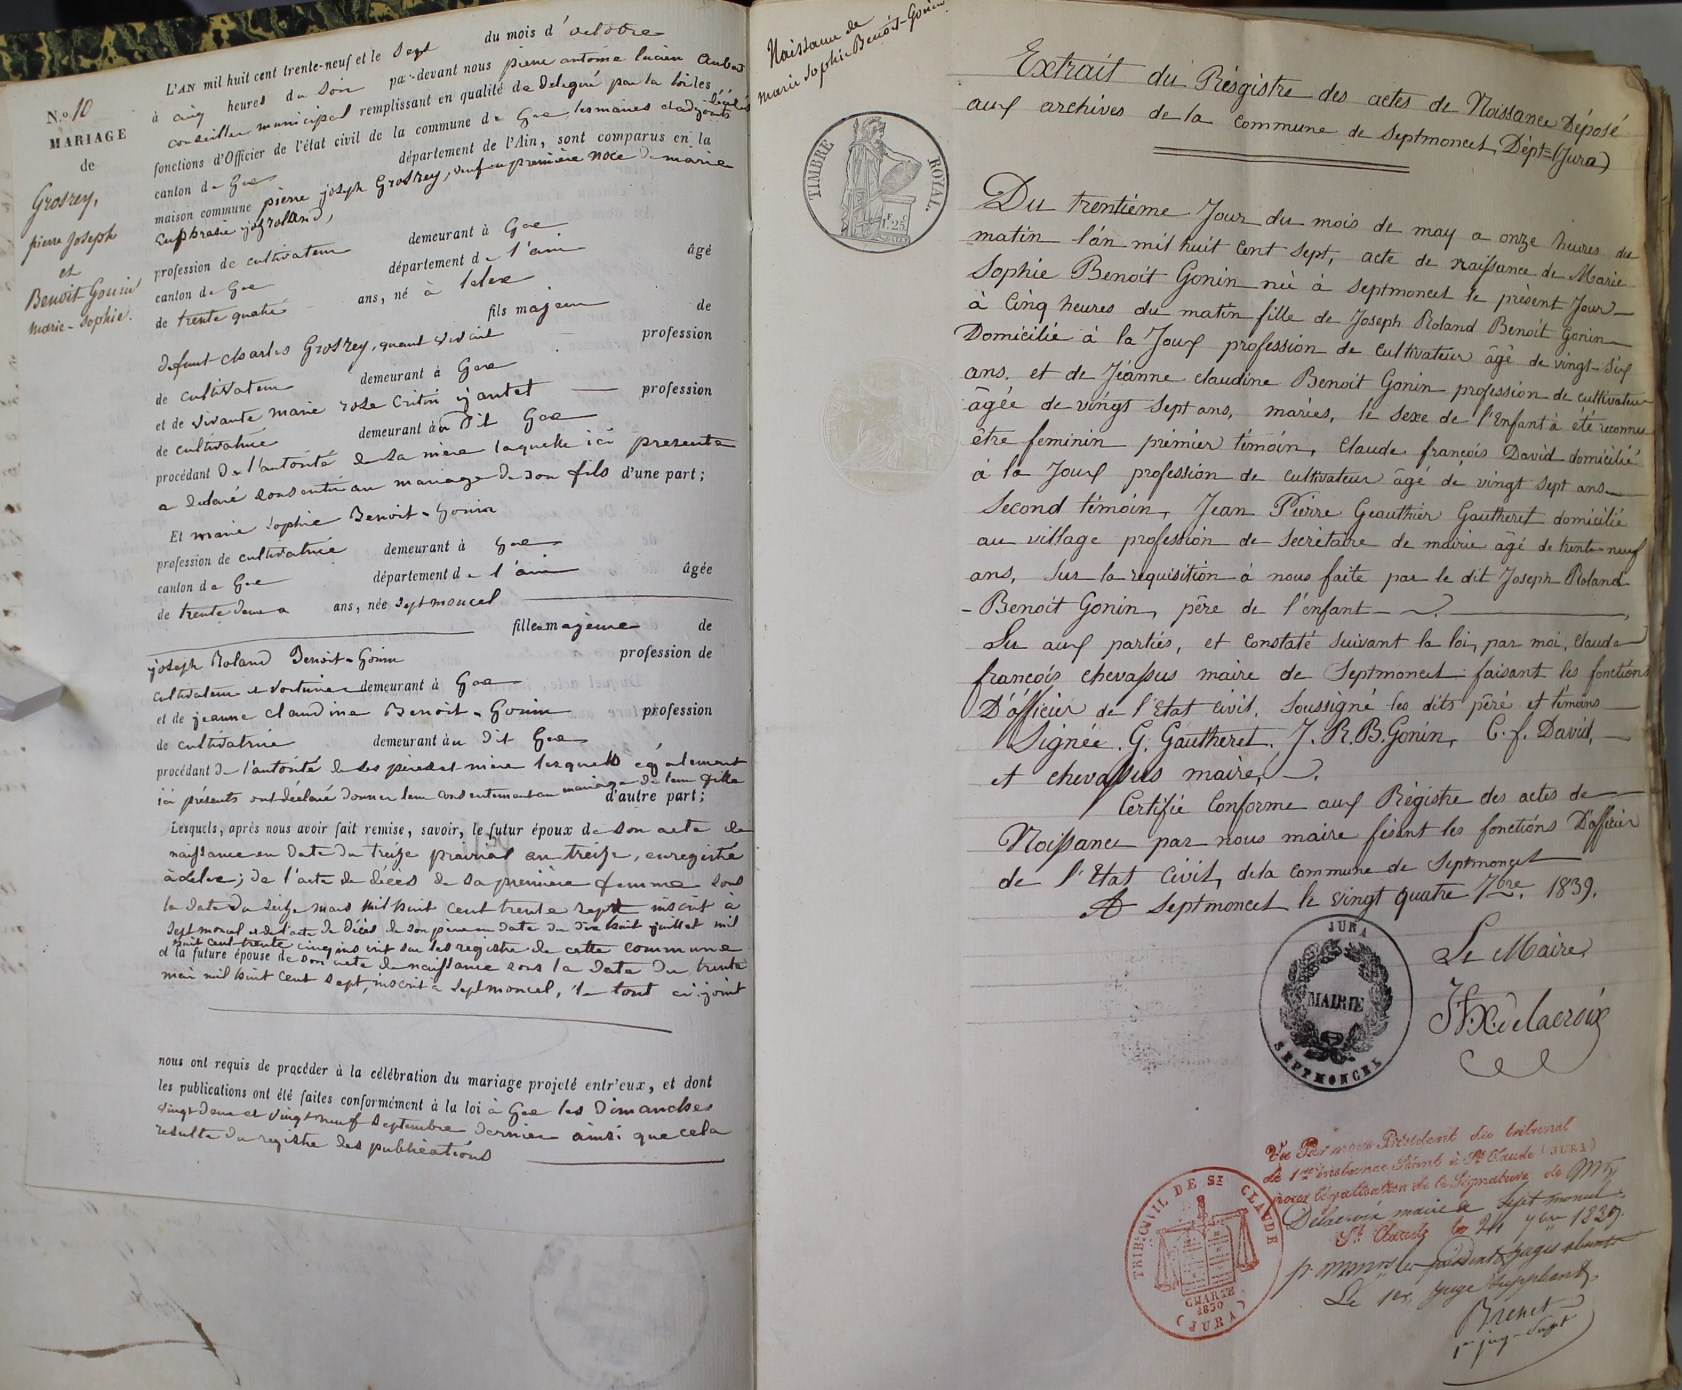 N.o 10
MARIAGE
de
Grosrey,
pierre Joseph
et
Benoit Gonin
marie-Sophie.
L'AN mil huit cent trente-neuf et le Sept du mois d'octobre
à cinq heures du Soir par-devant nous pierre antoine lucien
conseiller municipal remplissant en qualité de délégué par la loi les
fonctions d'Officier de l'état civil de la commune de Gex les maires et adjoints
canton de Gex département de l'Ain, sont comparus en la
maison commune pierre joseph Grosrey, veuf en première noce de marie
profession de cultivateur demeurant à Gex
canton de Gex département de l'ain âgé
de trente quatre ans, né à lelex
fils majeur de
defunt charles Grosrey, quant vivait profession
de cultivateur demeurant à Gex
et de vivante marie rose profession
de cultivatrice demeurant à u dit Gex
procédant de l'autorité de sa mère laquelle ici presente
a declaré consentir au mariage de son fils d'une part;
Et marie Sophie Benoit-Gonin
profession de cultivatrice demeurant à Gex
canton de Gex département de l'ain âgée
de trente deux ans, née Septmoncel
fille majeure de
joseph Roland Benoit-Gonin profession de
cultivateur et voiturier demeurant à Gex
et de jeanne claudine Benoit-Gonin profession
de cultivatrice demeurant à u dit Gex
procédant de l'autorité de ses père et mère lesquels également
ici présents ont déclaré donner leur consentement au mariage de leur fille
d'autre part;
Lesquels, après nous avoir fait remise, savoir, le futur époux de son acte de
naissance en date du treize prairial an treize, enregistré
à Lelex; de l'acte de décès de sa première femme sous
la date du seize mars mil huit cent trente sept inscrit à
Septmoncel et de l'acte de décès de son père en date du dix huit juillet mil
huit cent trente cinq inscrit sur les registre de cette commune
et la future épouse de son acte de naissance sous la date du trente
mai mil huit cent sept, inscrit à Septmoncel, le tout ci-joint
nous ont requis de procéder à la célébration du mariage projeté entr'eux, et dont
les publications ont été faites conformément à la loi à Gex les Dimanches
vingt deux et vingt neuf Septembre dernier ainsi que cela
resulte du registre des publications
Naissance de
marie Sophie Benoit-Gonin
TIMBRE ROYAL.
1F.25c
Extrait du Régistre des actes de Naissance Déposé
aux archives de la commune de Septmoncel, Dépt= (Jura)
Du trentième Jour du mois de may a onze heures du
matin l'an mil huit cent sept, acte de naissance de Marie
Sophie Benoit Gonin née à Septmoncel le présent Jour
à cinq heures du matin fille de Joseph Roland Benoit Gonin
Domicilié à la Joux profession de cultivateur âgé de vingt-six
ans, et de Jéanne claudine Benoit Gonin profession de cultivateur
âgée de vingt sept ans, mariés, le sexe de l'Enfant à été reconnu
être feminin premier témoin, Claude françois David domicilié
à la Joux profession de cultivateur âgé de vingt sept ans
Second témoin, Jean Pierre Geauthier Gautheret domicilié
au village profession de Secrétaire de mairie âgé de trente-neuf
ans, sur la requisition à nous faite par le dit Joseph Roland
-Benoit Gonin, père de l'enfant
Lu aux parties, et constaté suivant la loi, par moi, Claude
françois chevassus maire de Septmoncel faisant les fonctions
D'officier de l'Etat civil. Soussigné les dits père et témoins
Signée. G. Gautheret. J. R. B. Gonin, C. f. David,
et chevassus maire.
Certifié Conforme aux Régistre des actes de
Naissance par nous maire fisant les fonctions D'officier
de l'Etat civil, dela commune de Septmoncel
A Septmoncel le vingt quatre 7bre 1839.
Le Maire
Delacroix
JURA
MAIRIE
SEPTMONCEL
Vu Par nous Président du tribunal
de 1ere instance Séant à St Claude (JURA)
pour légalisation de la Signature de Mr
Delacroix maire de Septmoncel
St Claude le 24 7bre 1839.
Le 1er Juge Suppléant
Brenet
TRIB. CIVIL DE ST CLAUDE
CHARTE
1830
(JURA)